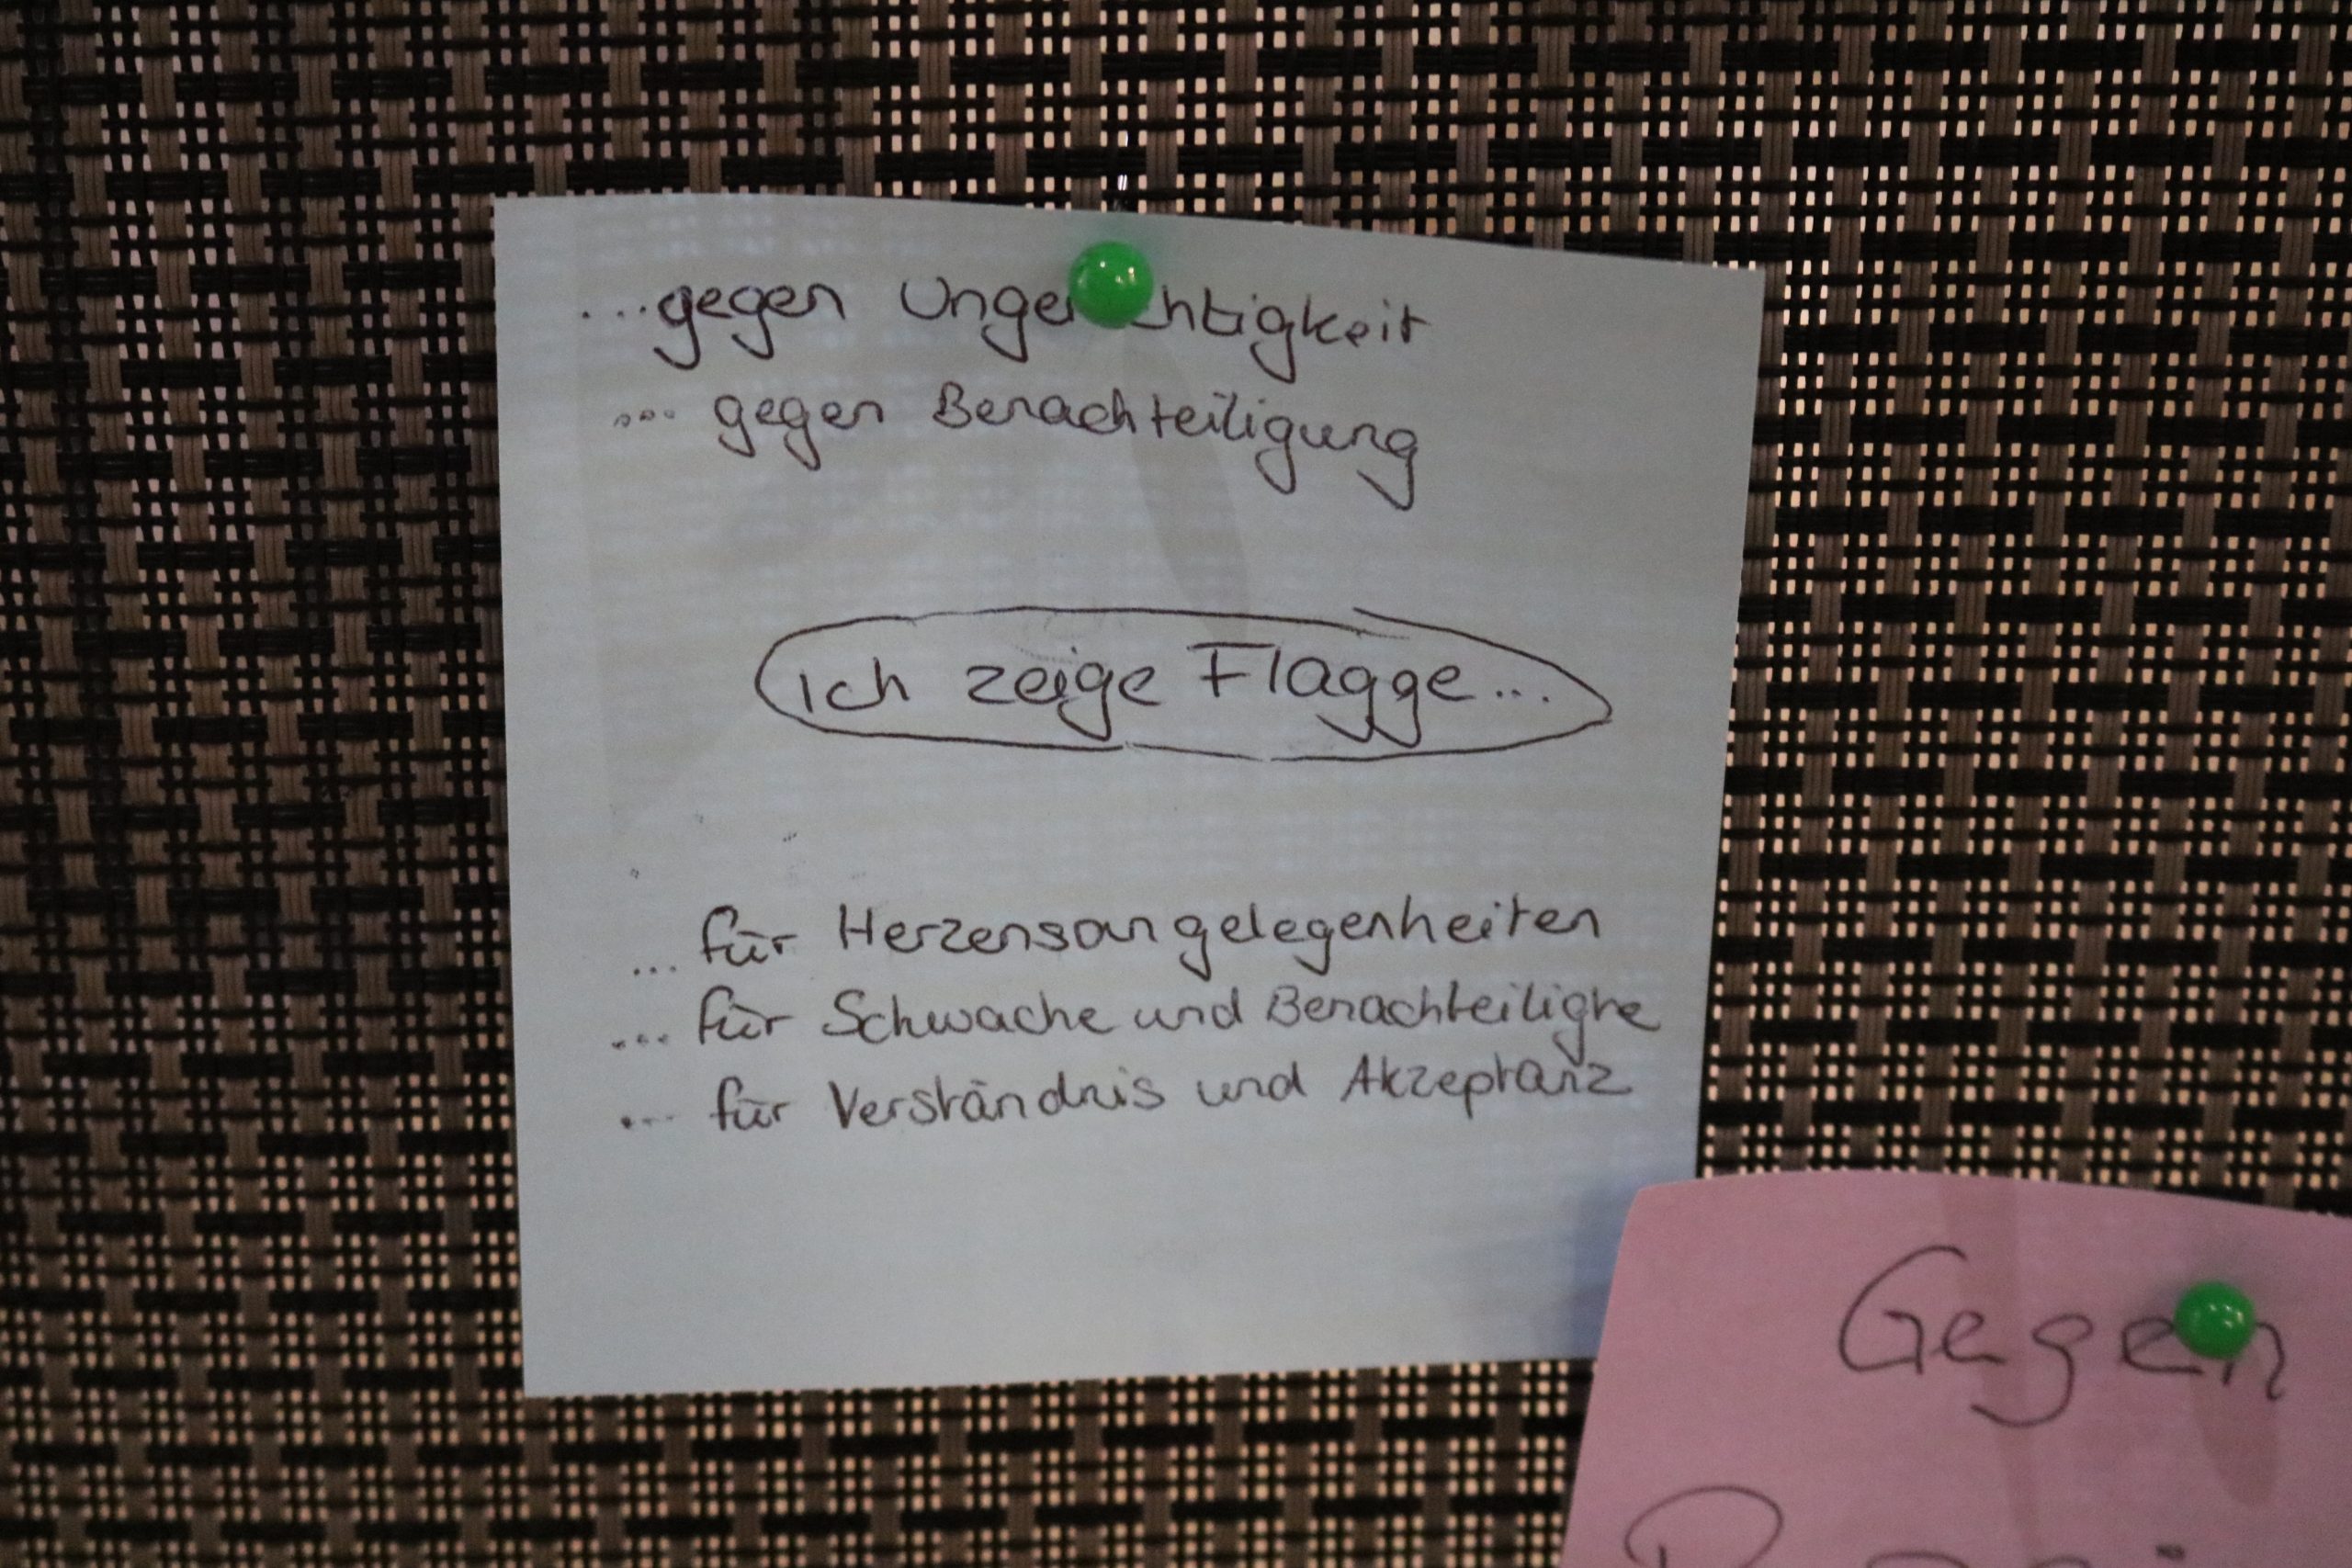 ...gegen Ungerechtigkeit
... gegen Benachteiligung
Ich zeige Flagge...
... für Herzensangelegenheiten
... für Schwache und Benachteiligte
... für Verständnis und Akzeptanz
Gegen